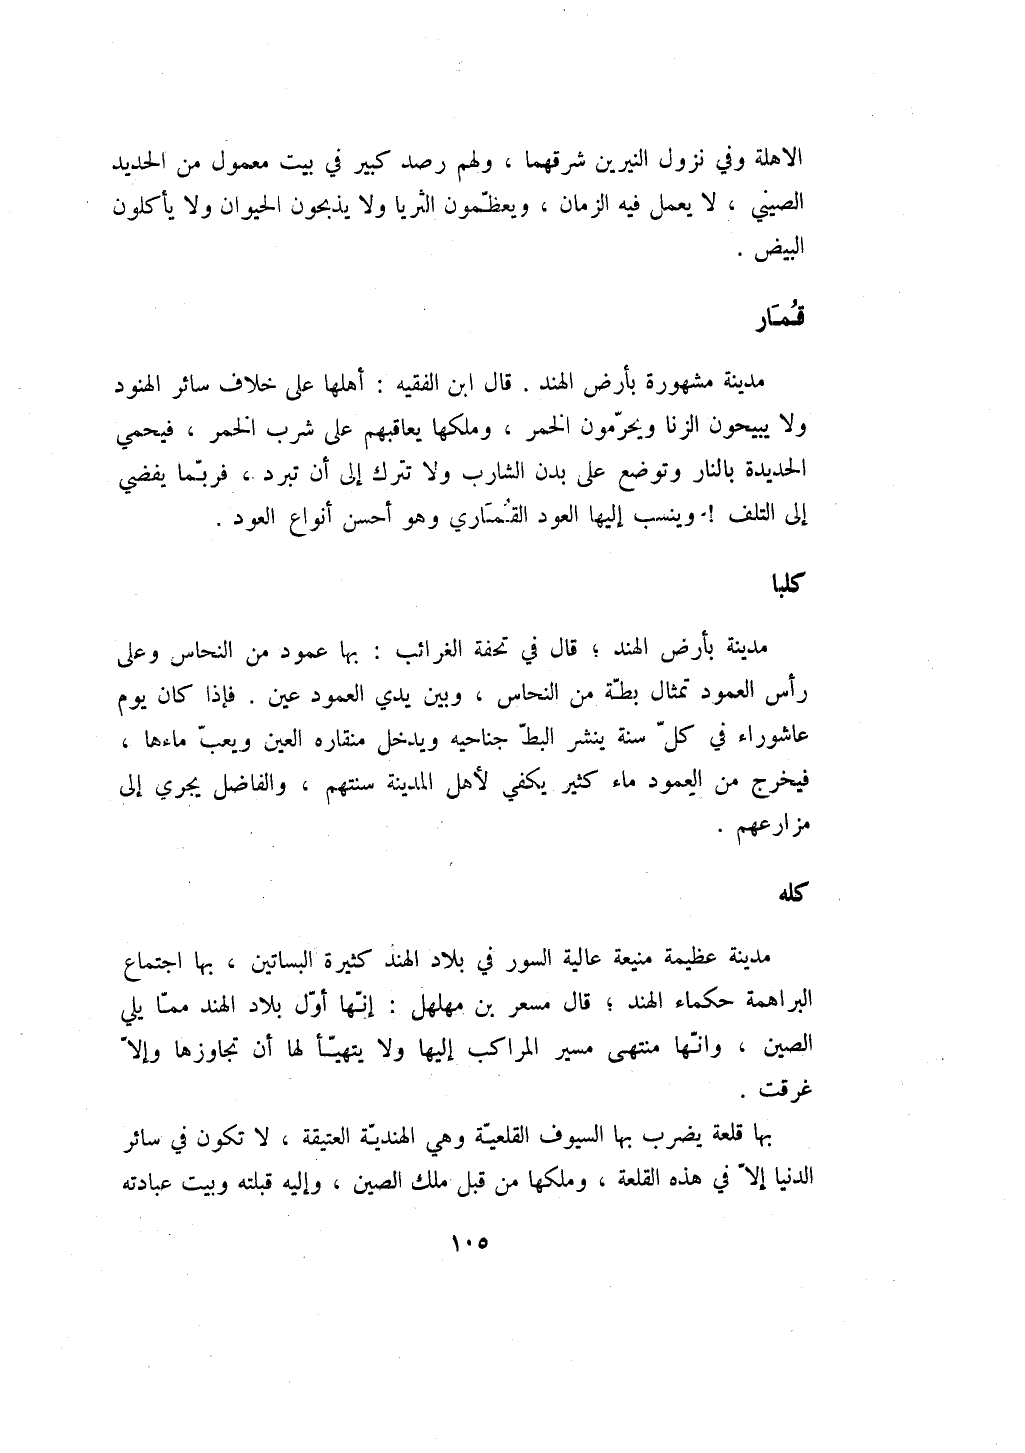 الاهلة وفي نزول النيرين شرقهما ، ولهم رصد كبير في بيت معمول من الحديد
الصيني ، لا يعمل فيه الزمان ، ويعظّمون الثريا ولا يذبحون الحيوان ولا يأكلون
البيض .
قُمَار
مدينة مشهورة بأرض الهند . قال ابن الفقيه : أهلها على خلاف سائر الهنود
ولا يبيحون الزنا ويحرّمون الخمر ، وملكها يعاقبهم على شرب الخمر ، فيحمي
الحديدة بالنار وتوضع على بدن الشارب ولا تترك إلى أن تبرد ، فربّما يفضي
إلى التلف ! وينسب إليها العود القُمَاري وهو أحسن أنواع العود .
كلبا
مدينة بأرض الهند ؛ قال في تحفة الغرائب : بها عمود من النحاس وعلى
رأس العمود تمثال بطّة من النحاس ، وبين يدي العمود عين . فإذا كان يوم
عاشوراء في كلّ سنة ينشر البطّ جناحيه ويدخل منقاره العين ويعبّ ماءها ،
فيخرج من العمود ماء كثير يكفي لأهل المدينة سنتهم ، والفاضل يجري إلى
مزارعهم .
كله
مدينة عظيمة منيعة عالية السور في بلاد الهند كثيرة البساتين ، بها اجتماع
البراهمة حكماء الهند ؛ قال مسعر بن مهلهل : إنّها أوّل بلاد الهند ممّا يلي
الصين ، وانّها منتهى مسير المراكب إليها ولا يتهيّأ لها أن تجاوزها وإلاّ
غرقت .
بها قلعة يضرب بها السيوف القلعيّة وهي الهنديّة العتيقة ، لا تكون في سائر
الدنيا إلاّ في هذه القلعة ، وملكها من قبل ملك الصين ، وإليه قبلته وبيت عبادته
١٠٥